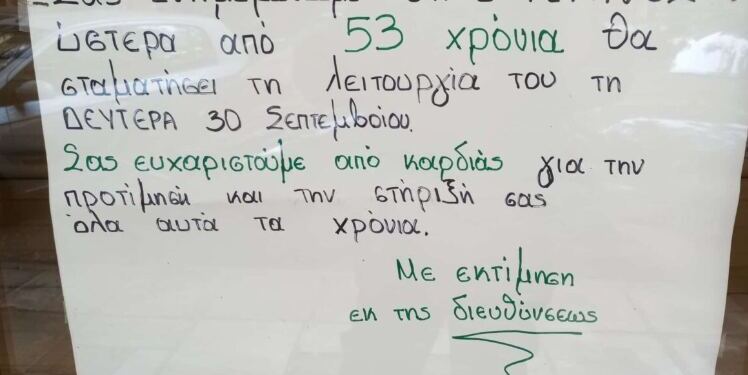 ύστερα από 53 χρόνια θα
σταματήσει τη λειτουργία του τη
ΔΕΥΤΕΡΑ 30 Σεπτεμβρίου.
Σας ευχαριστούμε από καρδιάς για την
προτίμηση και την στήριξή σας
όλα αυτά τα χρόνια.
Με εκτίμηση
εκ της διευθύνσεως